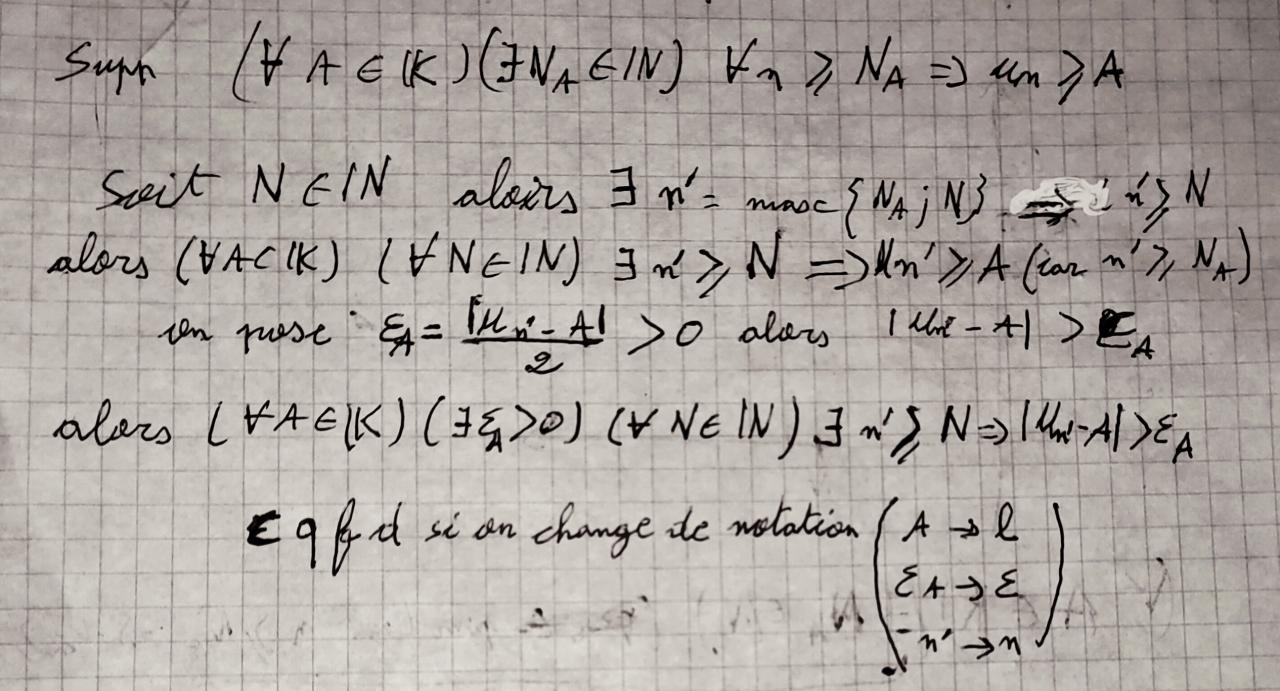 Supp (∀ A ∈ IK) (∃ N_A ∈ IN) ∀n ⩾ N_A => un ⩾ A
Soit N ∈ IN alors ∃ n' = max {N_A ; N} n' ⩾ N
alors (∀ A ∈ IK) (∀ N ∈ IN) ∃ n' ⩾ N => Un' ⩾ A (car n' ⩾ N_A)
on pose ε_A = |U_n' - A| / 2 > 0 alors |Un' - A| > ε_A
alors (∀ A ∈ IK) (∃ ε_A > 0) (∀ N ∈ IN) ∃ n' ⩾ N => |Un' - A| > ε_A
C q f d si on change de notation ( A → l
ε_A → ε
n' → n )